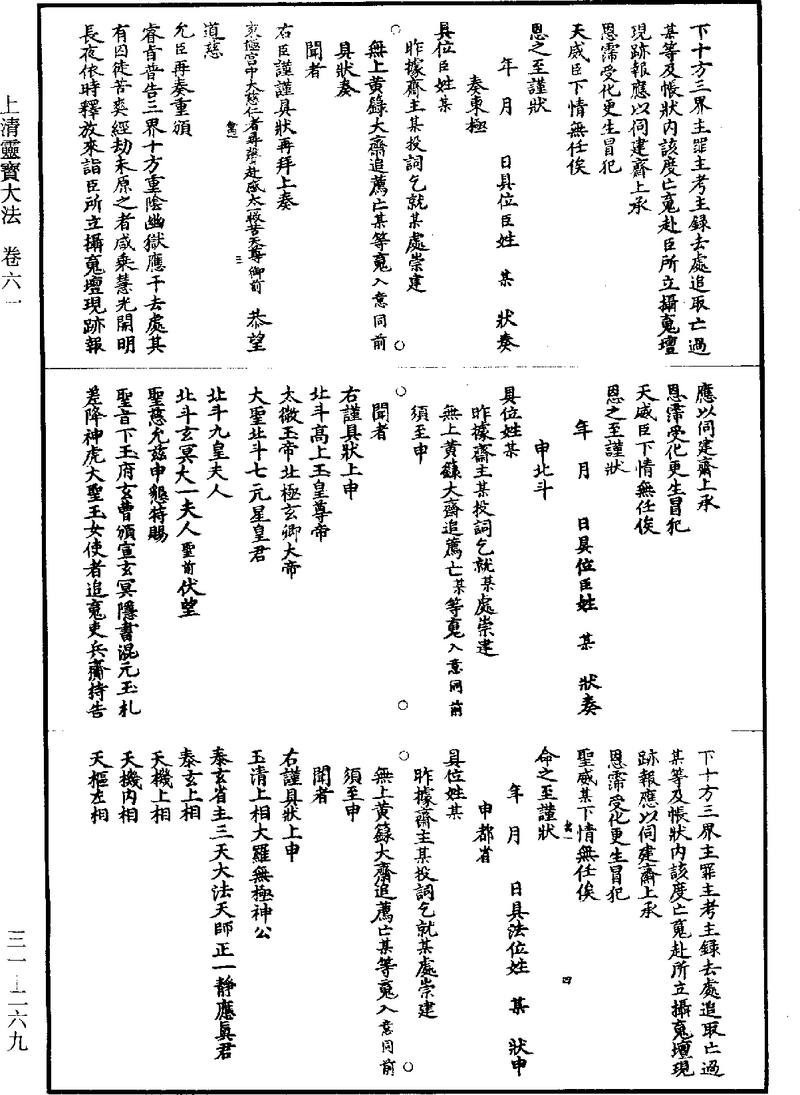 上清靈寶大法　卷六一
三一—二六九
下十方三界主罪主考主錄去處追取亡過
某等及帳狀內該度亡䰟赴臣所立攝䰟壇
現跡報應以伺建齋上承
恩霈受化更生冒犯
天威臣下情無任俟
恩之至謹狀
年　月　日具位臣姓　某　狀奏
奏東極
具位臣姓某
昨據齋主某投詞乞就某處崇建
無上黃籙大齋追薦亡某等䰟入意同前
○　○
具狀奏
聞者
右臣謹謹具狀再拜上奏
東極宮中大慈仁者尋聲赴感太乙救苦天尊御前　恭望
三
道慈
允臣再奏重頒
睿旨普告三界十方重陰幽獄應干去處其
有囚徒苦爽經劫未原之者咸乘慧光開明
長夜依時釋放來詣臣所立攝䰟壇現跡報
應以伺建齋上承
恩霈受化更生冒犯
天威臣下情無任俟
恩之至謹狀
年　月　日具位臣姓　某　狀奏
申北斗
具位姓某
昨據齋主某投詞乞就某處崇建
無上黃籙大齋追薦亡某等䰟入意同前
須至申
○　○
聞者
右謹具狀上申
北斗高上玉皇尊帝
太微玉帝北極玄卿大帝
大聖北斗七元星皇君
北斗九皇夫人
北斗玄冥大一夫人聖前伏望
聖慈允茲申懇特賜
聖旨下玉府玄曹頒宣玄冥隱書混元玉札
差降神虎大聖玉女使者追䰟吏兵齎持告
下十方三界主罪主考主錄去處追取亡過
某等及帳狀內該度亡䰟赴所立攝䰟壇現
跡報應以伺建齋上承
恩霈受化更生冒犯
聖威某下情無任俟
命之至謹狀
四
年　月　日具法位姓　某　狀申
申都省
具位姓某
昨據齋主某投詞乞就某處崇建
○　○
無上黃籙大齋追薦亡某等䰟入意同前
須至申
聞者
右謹具狀上申
玉清上相大羅無極神公
泰玄省主三天大法天師正一靜應真君
泰玄上相
天機上相
天機內相
天樞左相